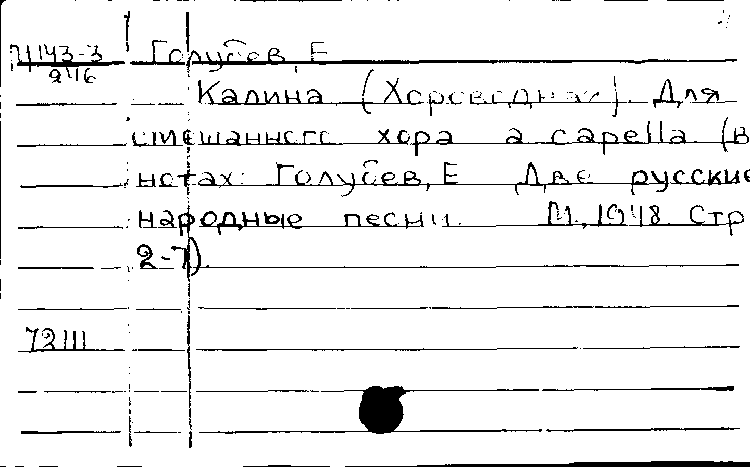 Голубев, Е
Калина (Хороводная). Для
смешанного хора a capella (в
нотах: Голубев, Е Две русские
народные песни. М., 1948 Стр
2-7).
72111